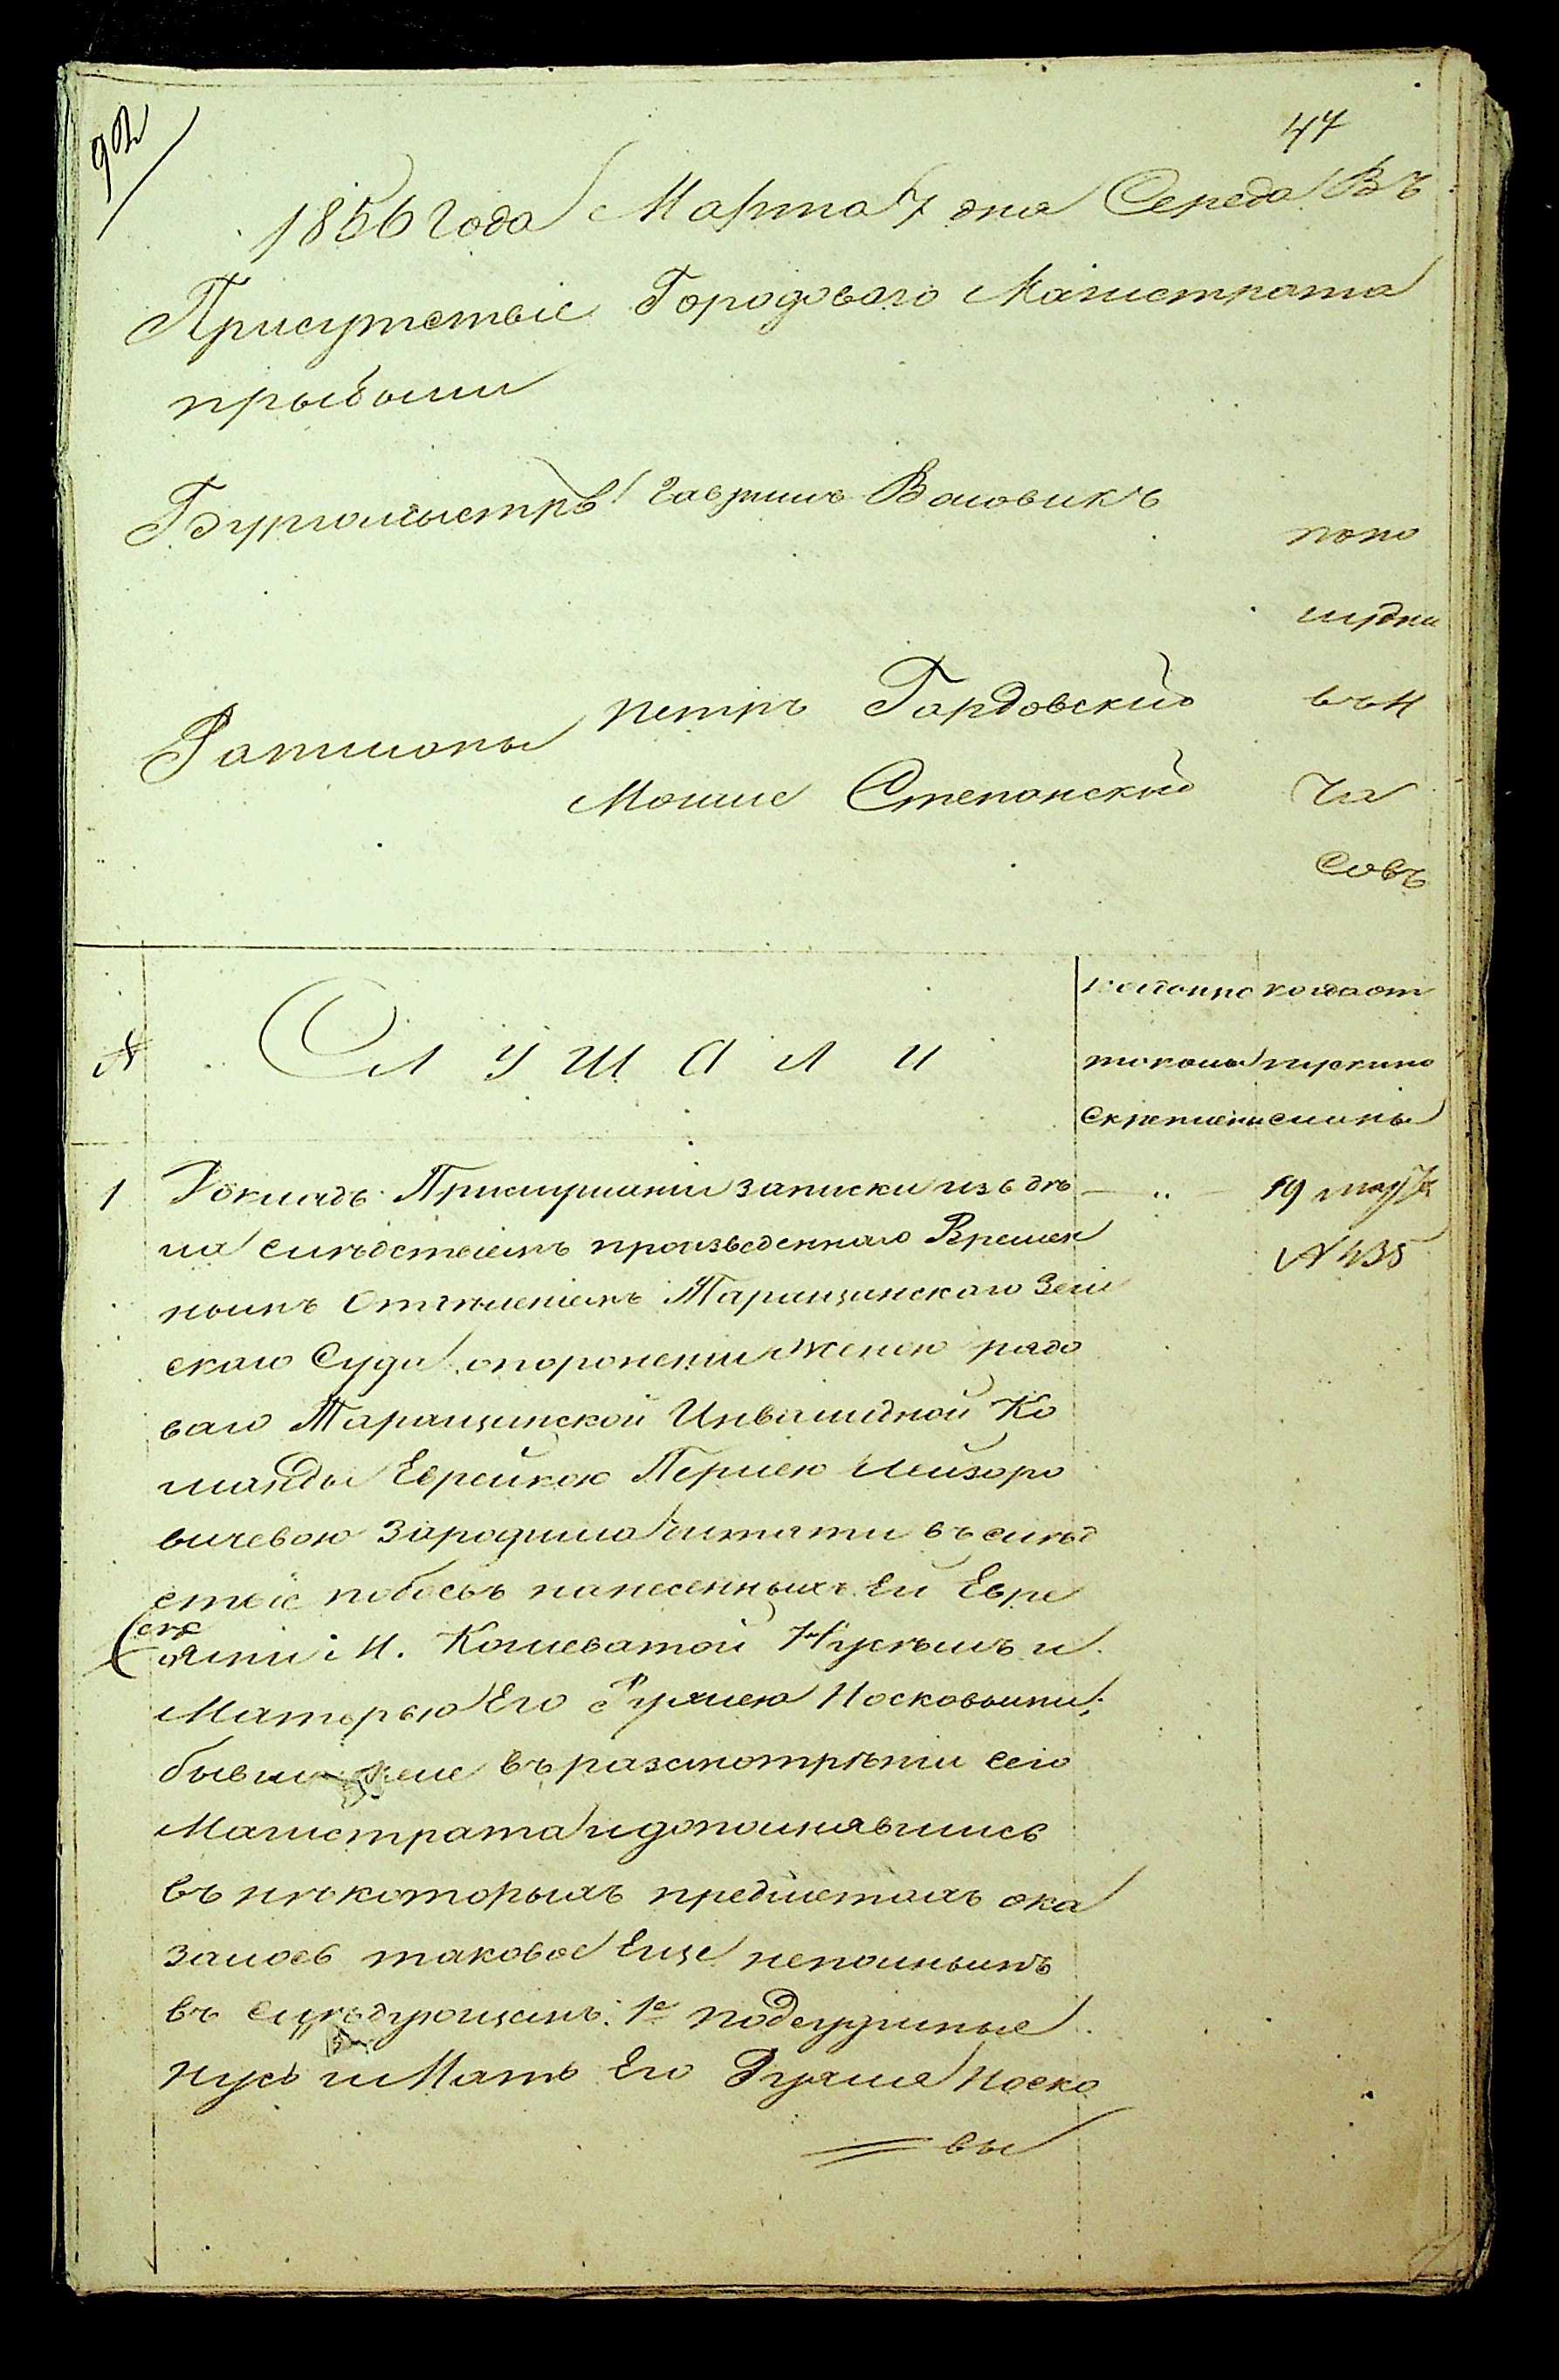 92
47
1856 года Марта 7 дня Середа Въ
Присутствіе Городового Магистрата
прыбыли
Бургомыстръ Гаврилъ Воловикъ
попо
лудни
Ратманы петръ Гордовский
въ 11
Мошко Степанский
ча
совъ
№ Слушали
когда про когда от
токолъ пускано
скрепленъ сполны
1 Докладъ Прислушании записки изъ дѣ
ла слѣдствіемъ произведеннаго Времен
нымъ Отделеніемъ Таращанскаго Зем
скаго Суда о поронении Женою рядо
ваго Таращанской Инвалидной Ко
манды Еврейкою Перлею Лейзоро
вичевою Зародыша дитяти въ слѣд
ствіе побоевъ нанесенныхъ Ей Евре
ями м. Кошеватой Нухимъ и
Матерью Его Рухлею Носковыми;
бывшое въ разсмотрѣніи сего
Магистрата и дополнявшись
въ нѣкоторыхъ предметахъ ока
залось таковое Еще неполнымъ
въ слѣдующемъ: 1е подсудимые
Нухъ и Мать Его Рухля Носко
вы
19 марта
№ 435